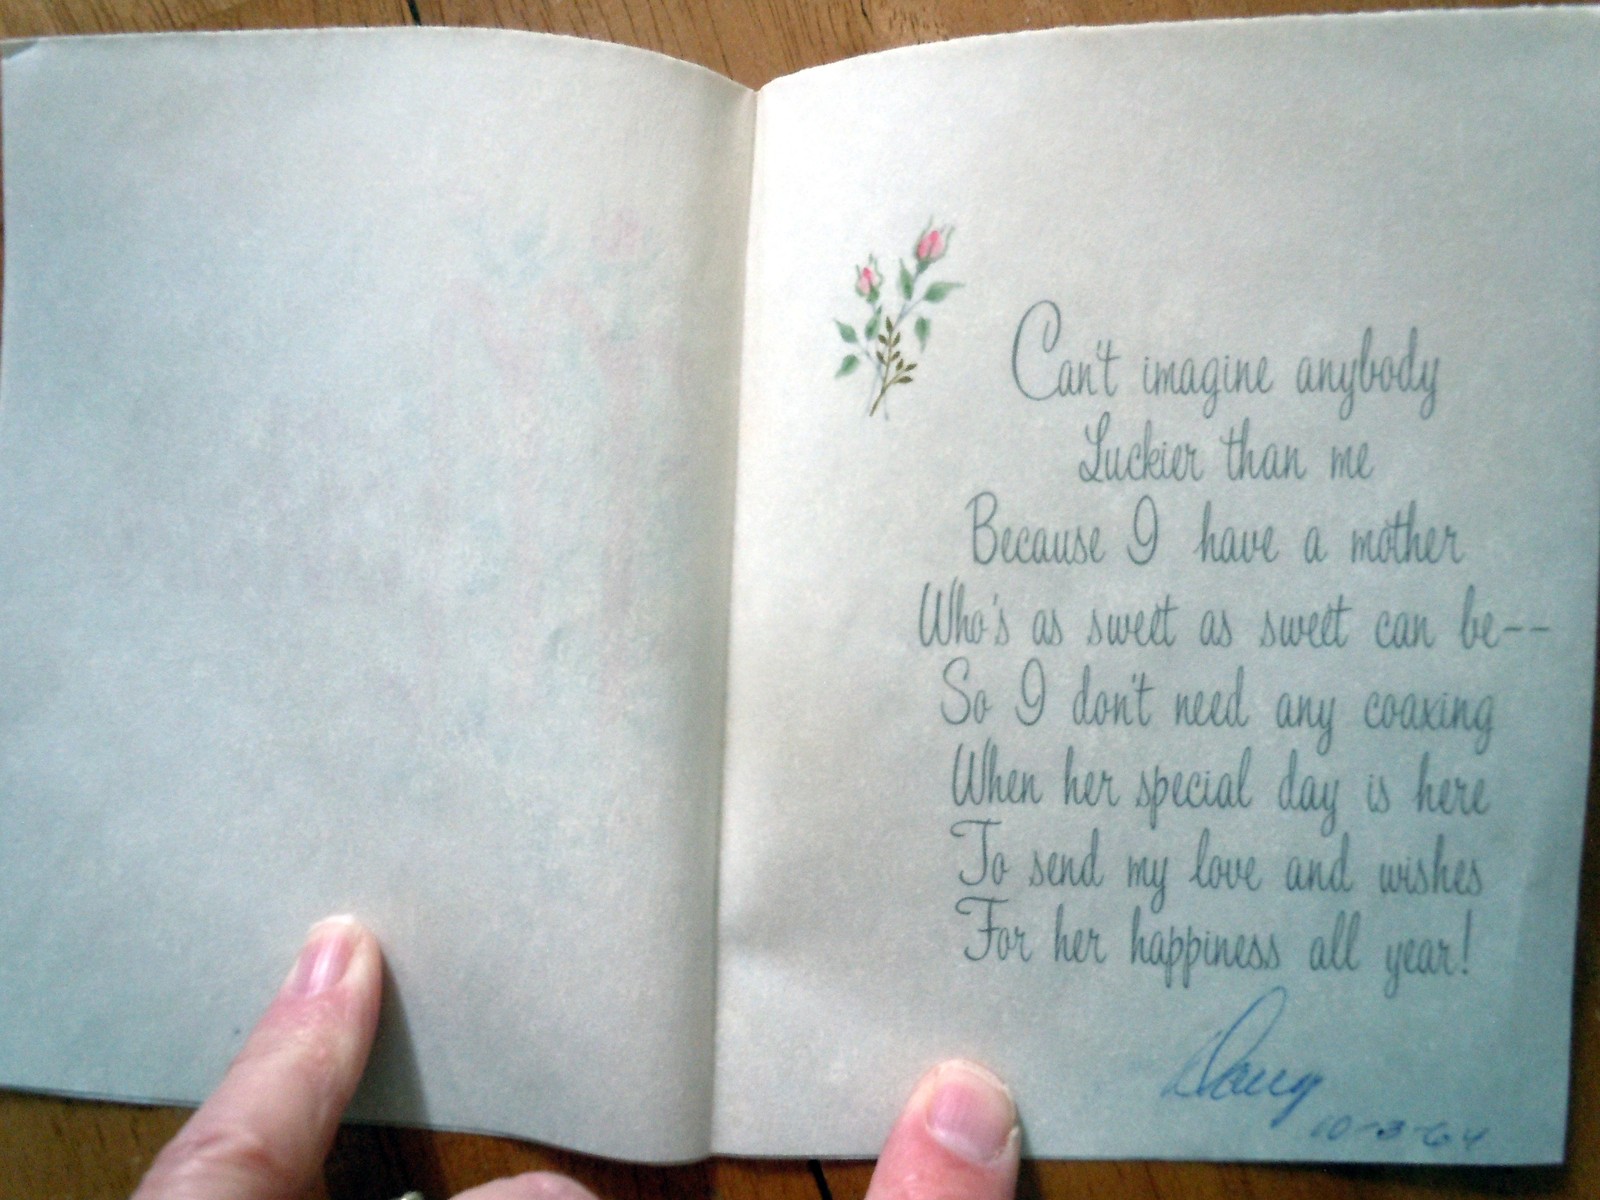 Can't imagine anybody
Luckier than me
Because I have a mother
Who's as sweet as sweet can be--
So I don't need any coaxing
When her special day is here
To send my love and wishes
For her happiness all year!
10-3-64